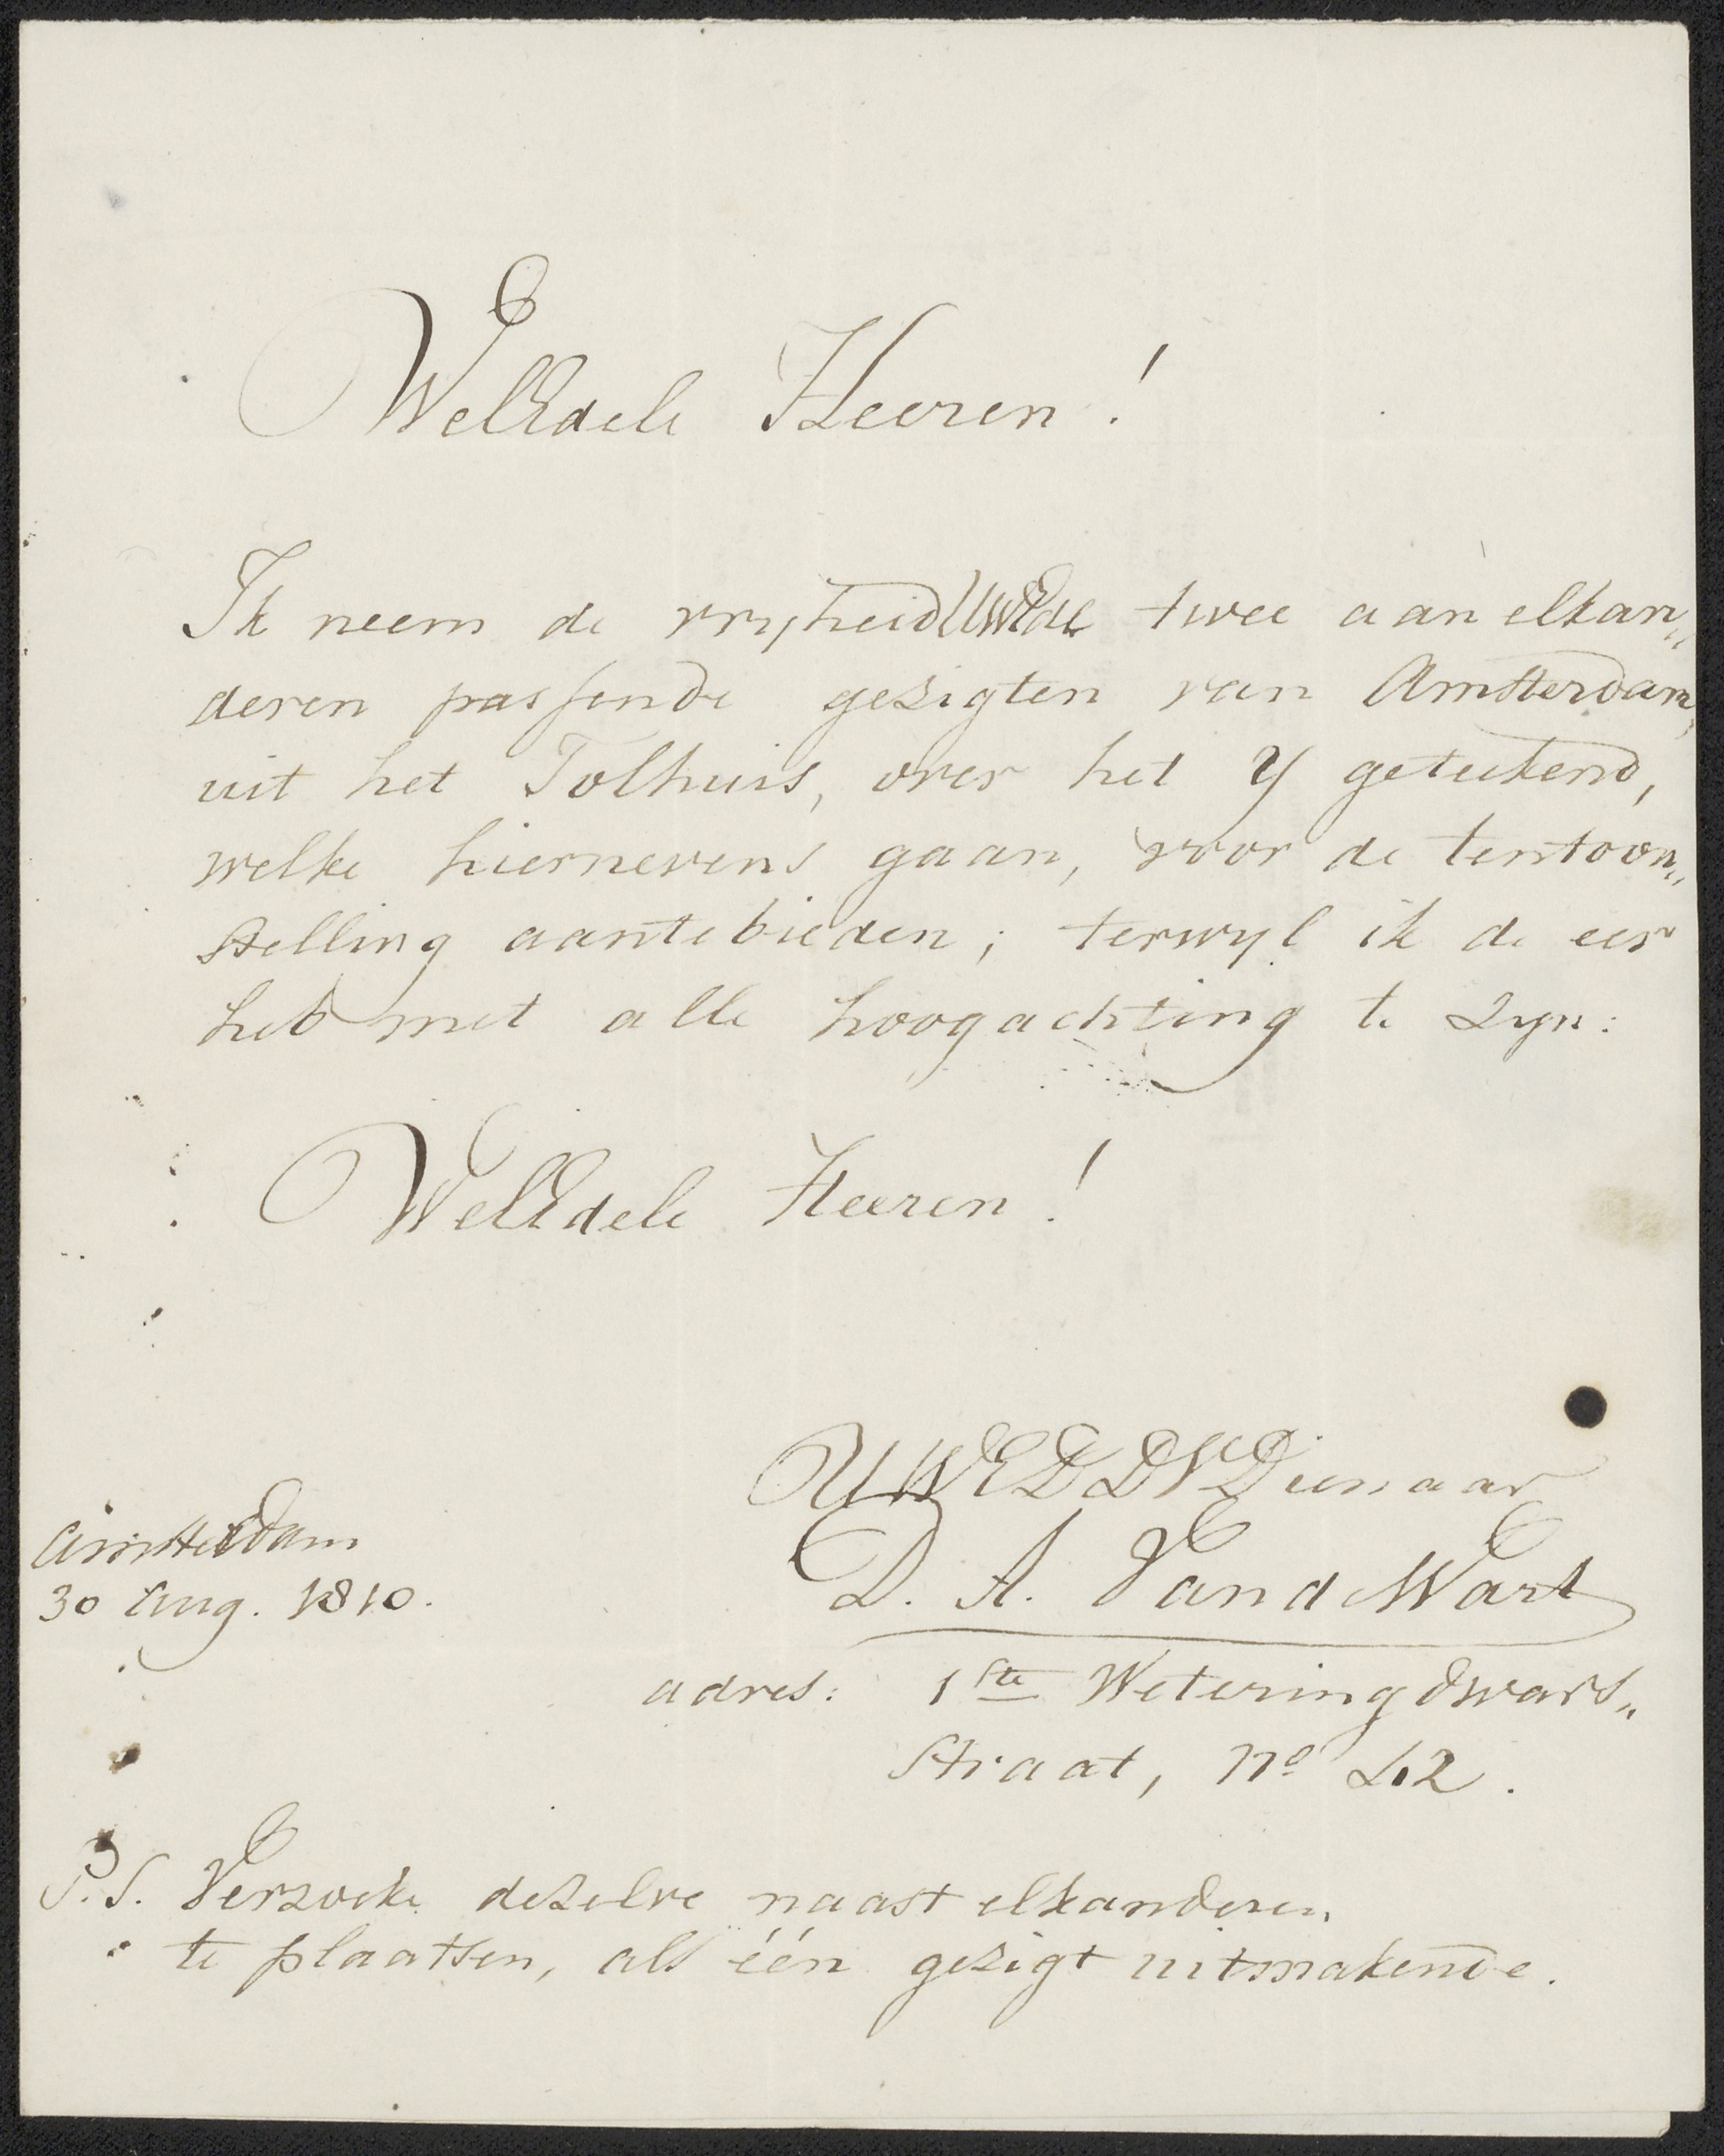 WelEdele Heeren!
Ik neem de vryheid UWEde twee aan elkan„
deren passende gezigten van Amsterdam,
uit het Tolhuis, over het Y geteekend,
welke hiernevens gaan, voor de tentoon„
stelling aantebieden; terwyl ik de eer
heb met alle hoogachting te zyn:
WelEdele Heeren!
UWEDDVDienaar
D. A. Van de Wart
Amsterdam
30 Aug. 1810.
adres: 1ste Wetering dwars„
Straat, No 42.
P.S. Verzoeke dezelve naast elkanderen
te plaatsen, als één gezigt uitmakende.